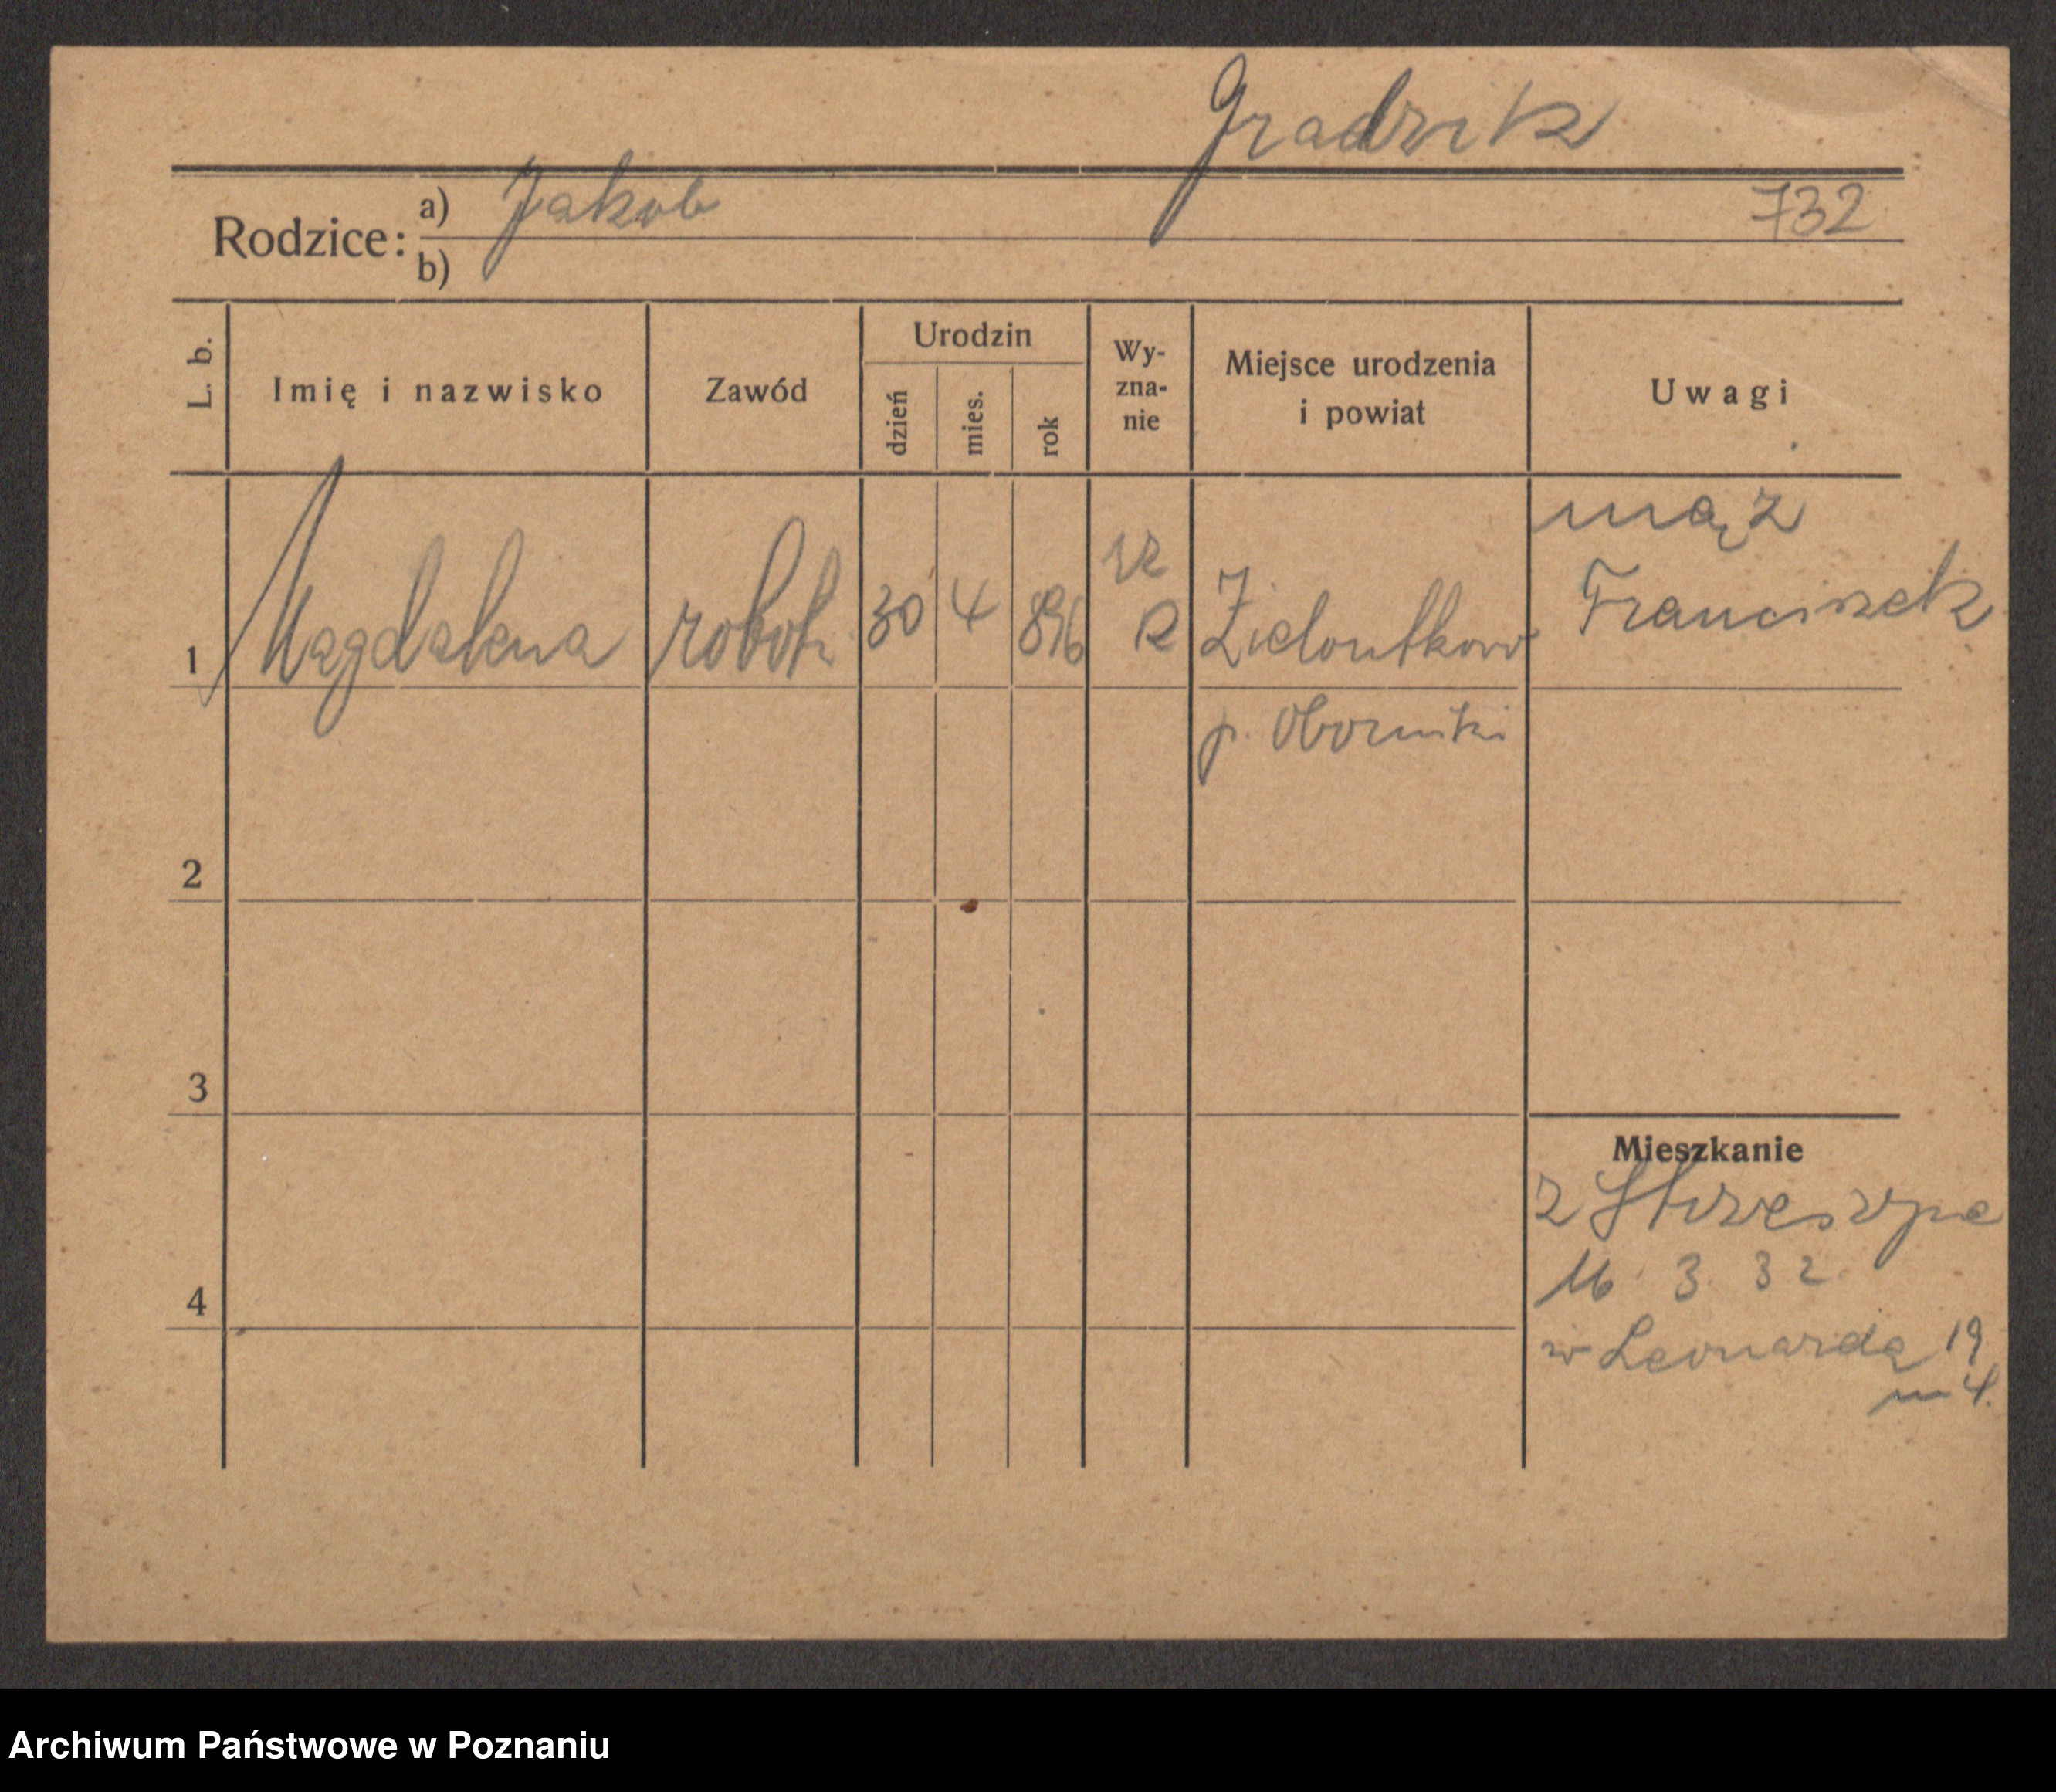 Gradzik
Rodzice: a) Jakob 732
b)
L. b. Imię i nazwisko Zawód Urodzin dzień mies. rok Wy-zna-nie Miejsce urodzenia i powiat Uwagi
mąż
1 Magdalena robotn 30 4 896 rz Franciszek
k
p. Oborniki
2
3
Mieszkanie
z Strzeszyna
16 3. 32
4
w Leonarda 19
m 4.
Archiwum Państwowe w Poznaniu